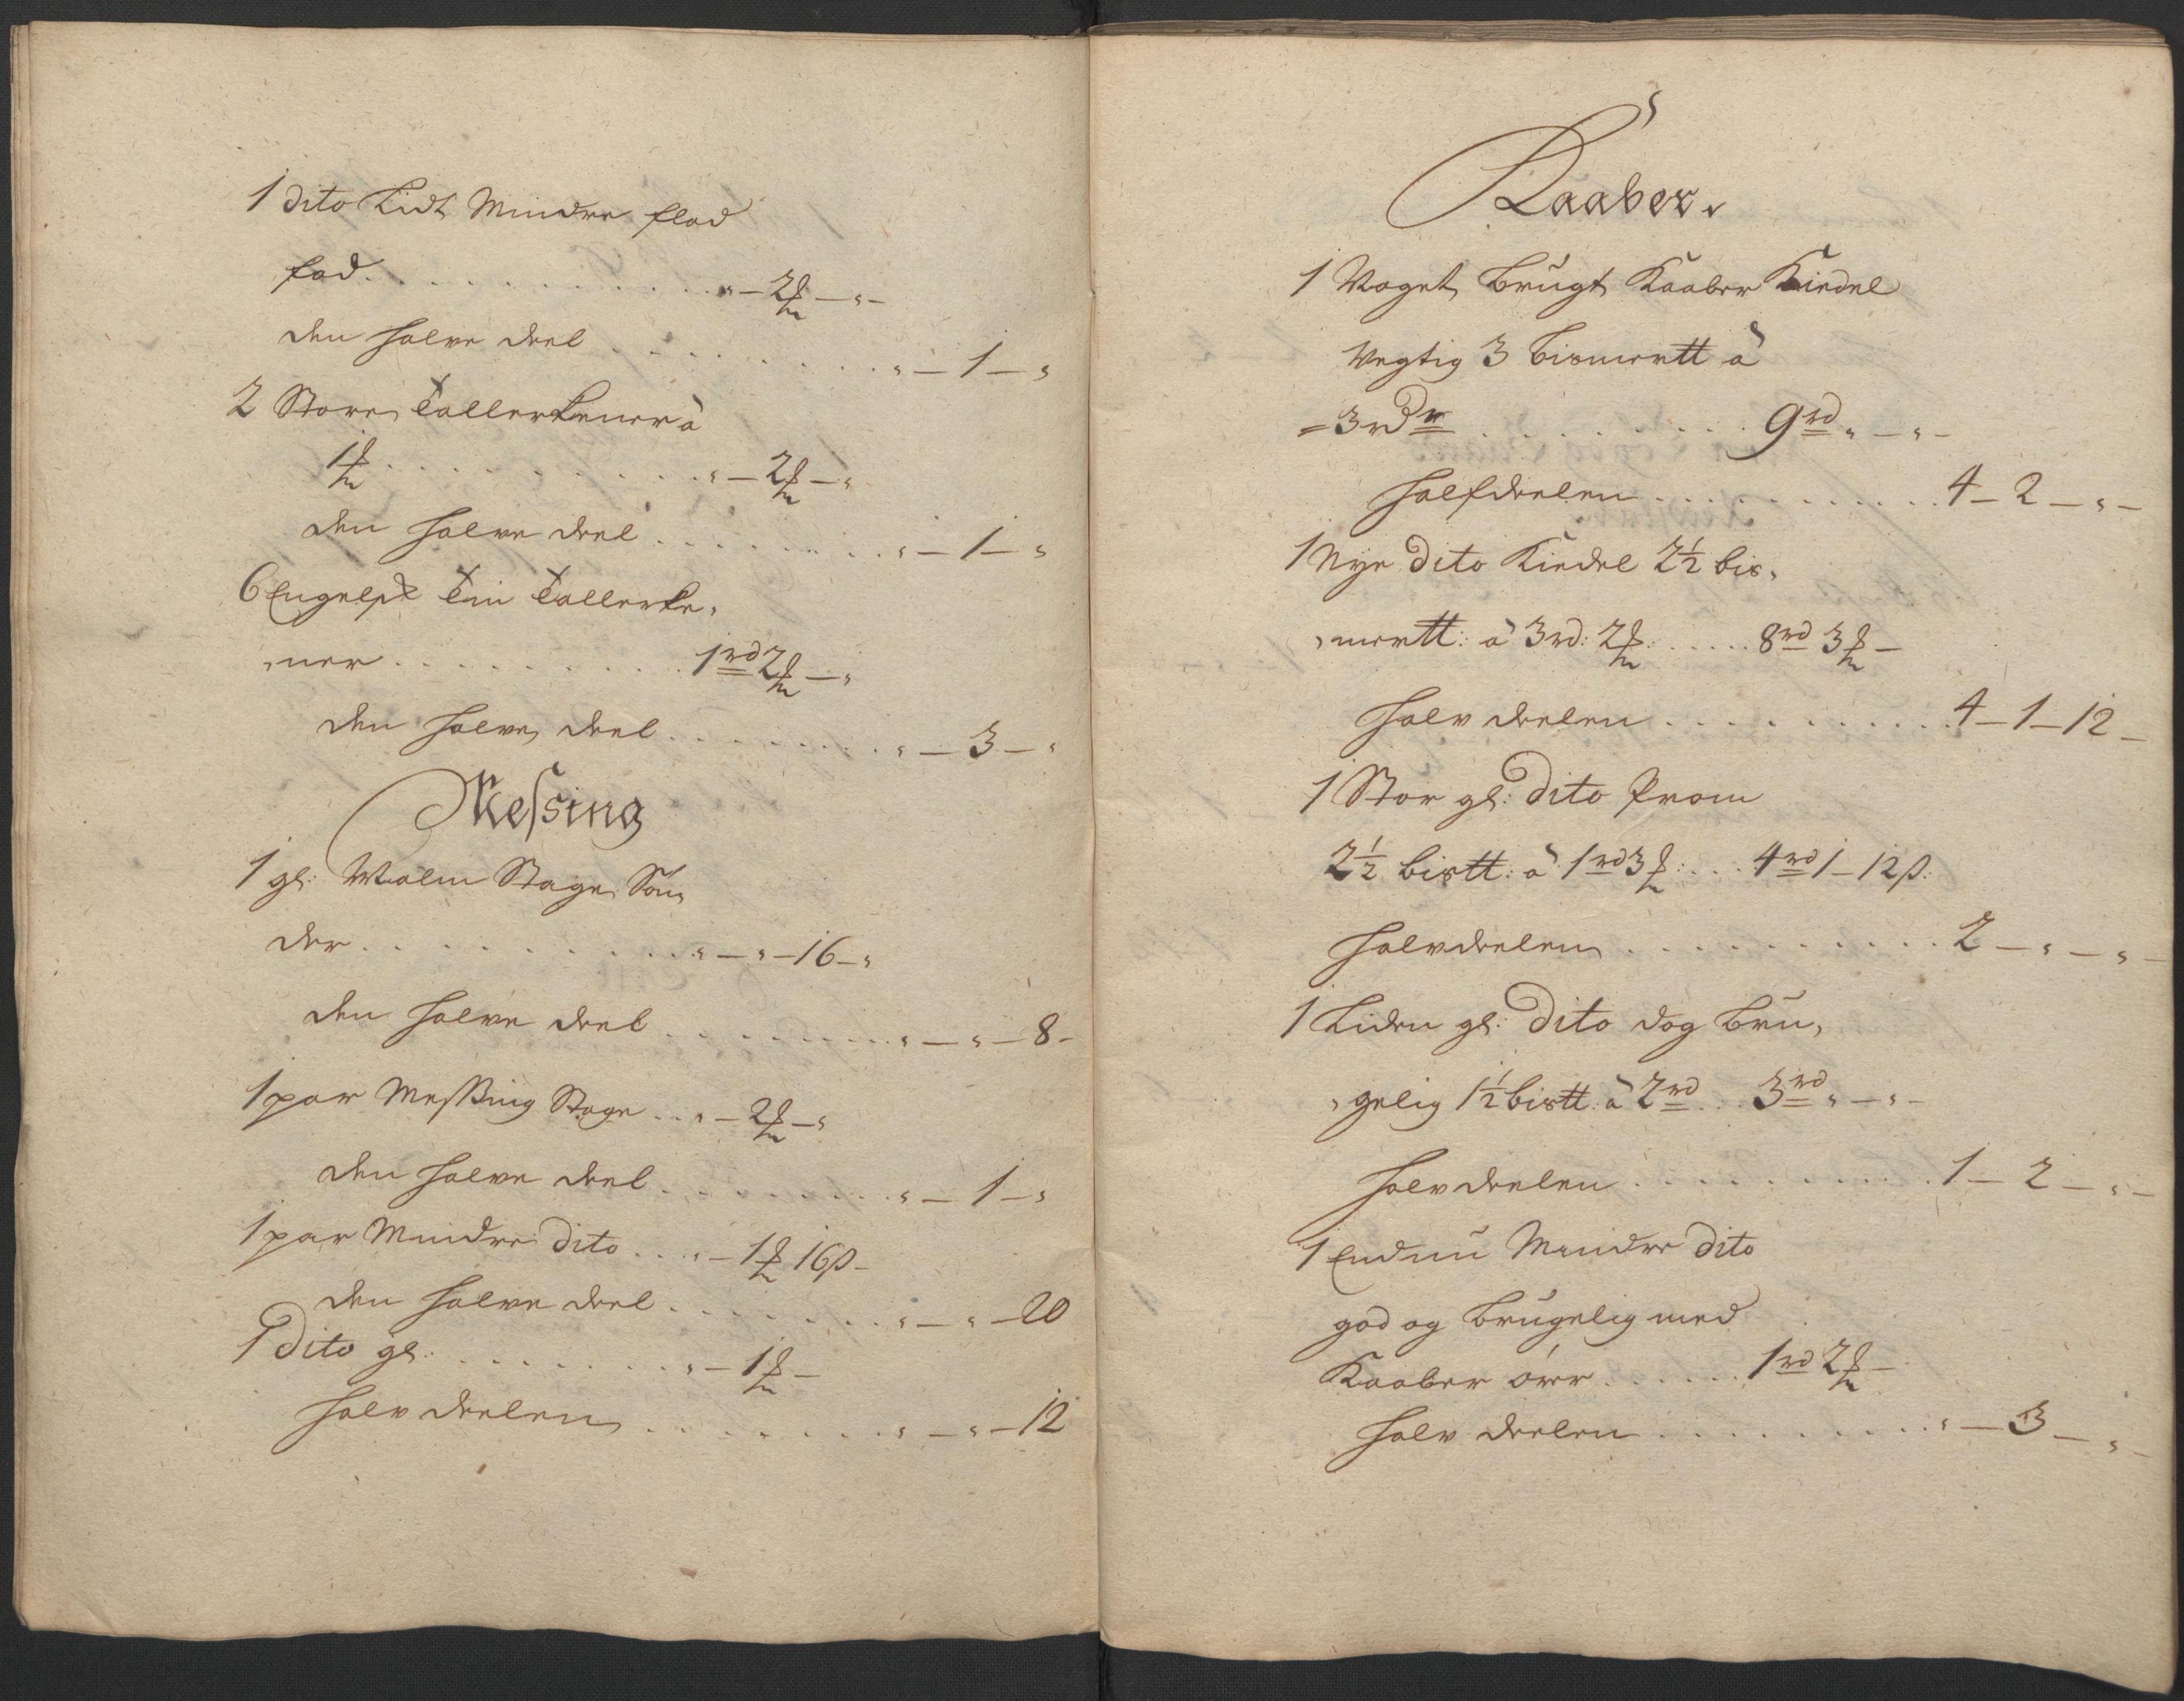 1 dito Lidt Mindre flad
fad . . . . . . „ – 2 ℔ – „ –
den halve deel . . . . . . „ – 1 – „
2 Store Tallerkener à
1 ℔ . . . . . . „ – 2 ℔ – „
den halve deel . . . . . . „ – 1 – „
6 Engelsk Tin Tallerke„
„ner . . . . . . 1 rd 2 ℔ – „
den halve deel . . . . . . „ – 3 – „
Messing
1 gl: Malm Stage Søn„
der . . . . . . „ – „ – 16 – „
den halve deel . . . . . . „ – „ – 8 –
1 par Messing Stage . . „ – 2 ℔ – „
den halve deel . . . . . . „ – 1 – „
1 par Mindre dito . . . „ – 1 ℔ 16 ß –
den halve deel . . . . . . „ – „ – 20
1 dito gl: . . . . . . „ – 1 ℔ –
halv deelen . . . . . . „ – „ – 12
Kaaber
1 Noget Brugt Kaaber Kiedel
Vegtig 3 bismertt à
= 3 rdr . . . . . . 9 rd „ – „ –
halfdeelen . . . . . . 4 – 2 – „ –
1 Nye dito Kiedel 2½ bis„
„mertt: à 3 rd: 2 ℔: . . . . . 8 rd 3 ℔ –
halv deelen . . . . . . 4 – 1 – 12 –
1 Stor gl: dito
2½ bistt: à 1 rd 3 ℔: . . . 4 rd 1 – 12 ß:
halvdeelen . . . . . . 2 – „ – „ –
1 Liden gl: dito dog bru„
„gelig 1½ bistt: à 2 rd . . . 3 rd „ – „ –
halv deelen . . . . . . 1 – 2 – „ –
1 Endnu Mindre dito
god og brugelig med
Kaaber ører . . . . . . 1 rd 2 ℔ –
halv deelen . . . . . . „ – 3 – „ –